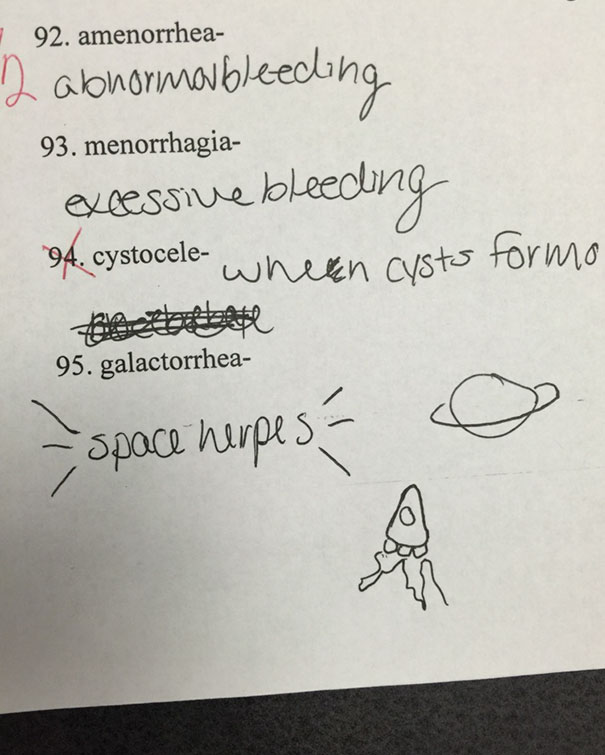 92. amenorrhea-
abnormal bleeding
93. menorrhagia-
excessive bleeding
94. cystocele- when cysts forms
95. galactorrhea-
space herpes